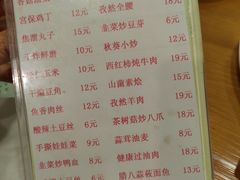 宫保鸡丁 12元
焦溜丸子 15元
10元
干煸豆角 12元
鱼香肉丝 12元
酸辣土豆丝 6元
手撕娃娃菜 9元
韭菜炒鸭血 8元
孜然全腰 18元
韭菜炒豆芽 6元
秋葵小炒 12元
西红柿炖牛肉 19元
山菌素烩 15元
孜然羊肉 19元
茶树菇炒八爪 18元
蒜茸油麦 8元
健康过油肉 18元
腊八蒜莜面鱼 13元